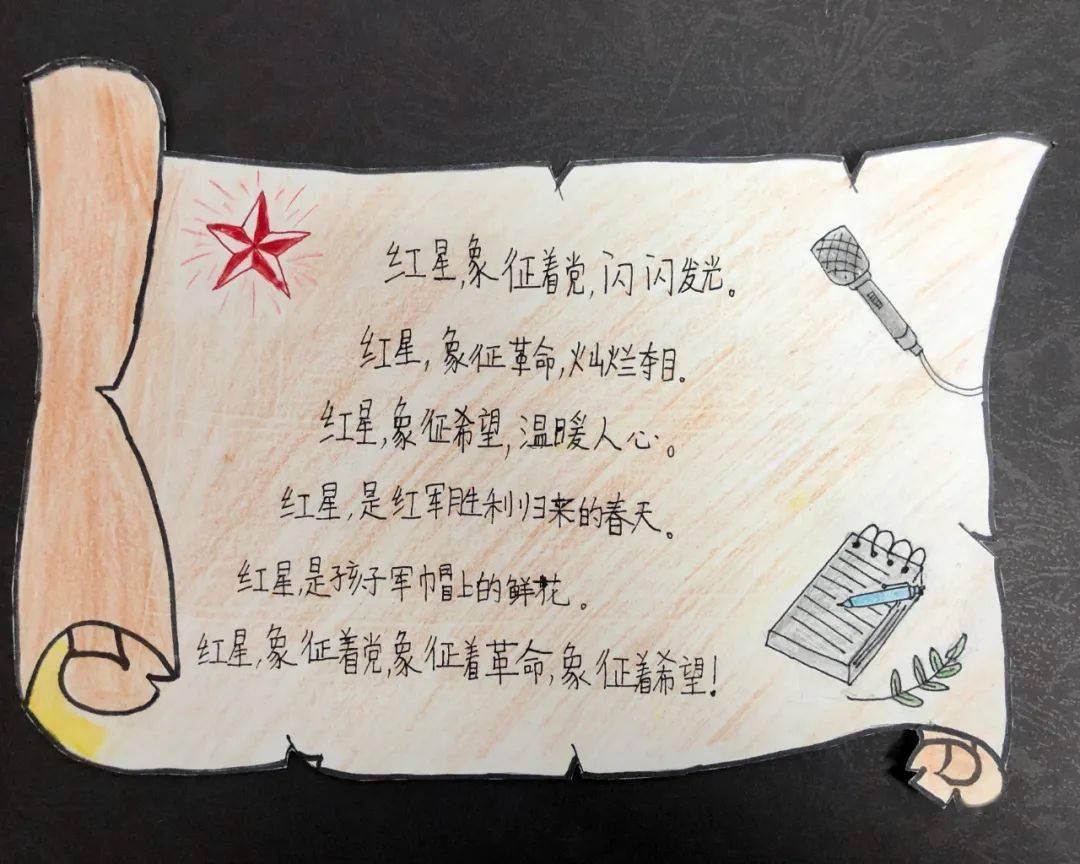 红星,象征着党,闪闪发光。
红星,象征革命,灿烂夺目。
红星,象征希望,温暖人心。
红星,是红军胜利归来的春天。
红星,是孩子军帽上的鲜花。
红星,象征着党,象征着革命,象征着希望!